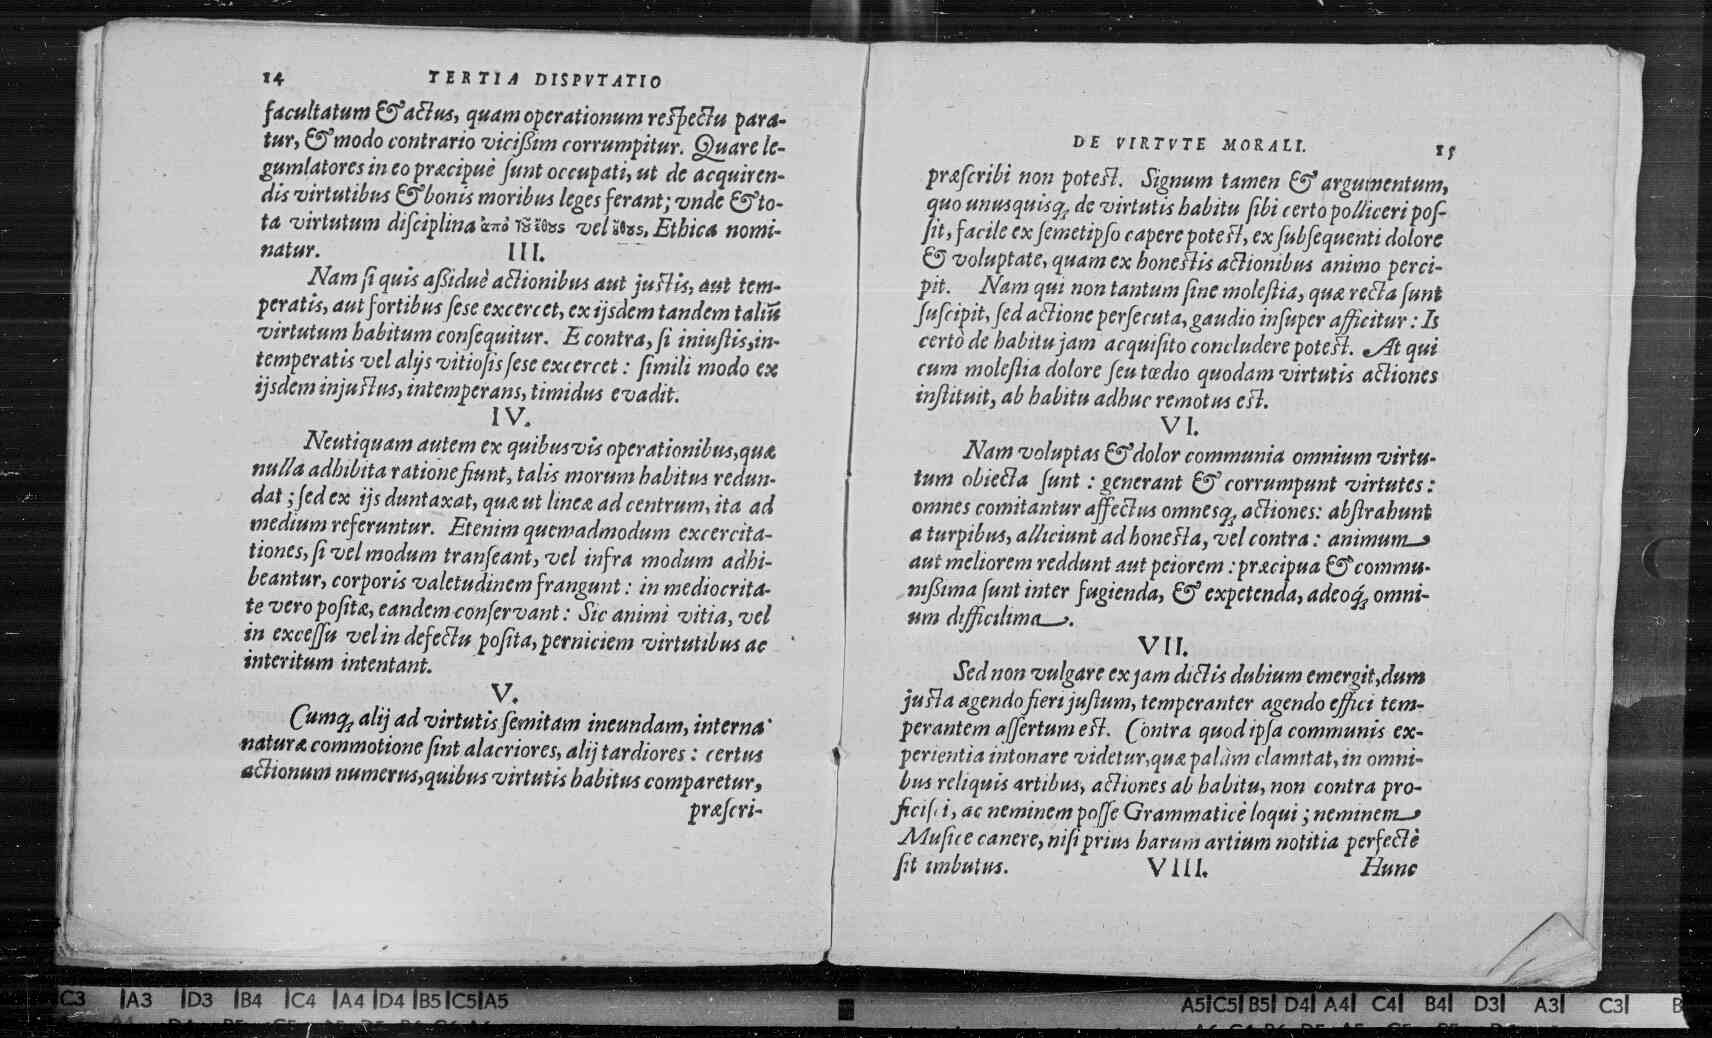 14 TERTIA DISPVTATIO
facultatum & actus, quam operationum respectu para-
tur, & modo contrario vicißim corrumpitur. Quare le-
gumlatores in eo præcipuè sunt occupati, ut de acquiren-
dis virtutibus & bonis moribus leges ferant; vnde & to-
ta virtutum disciplina ἀπὸ τοῦ ἔθους vel ἤθους, Ethica nomi-
natur. III.
Nam si quis aßiduè actionibus aut justis, aut tem-
peratis, aut fortibus sese excercet, ex ijsdem tandem taliū
virtutum habitum consequitur. E contra, si iniustis, in-
temperatis vel alijs vitiosis sese excercet : simili modo ex
ijsdem injustus, intemperans, timidus evadit.
IV.
Neutiquam autem ex quibusvis operationibus, quæ
nulla adhibita ratione fiunt, talis morum habitus redun-
dat ; sed ex ijs duntaxat, quæ ut lineæ ad centrum, ita ad
medium referuntur. Etenim quemadmodum excercita-
tiones, si vel modum transeant, vel infra modum adhi-
beantur, corporis valetudinem frangunt : in mediocrita-
te vero positæ, eandem conservant : Sic animi vitia, vel
in excessu vel in defectu posita, perniciem virtutibus ac
interitum intentant.
V.
Cumq; alij ad virtutis semitam ineundam, interna
naturæ commotione sint alacriores, alij tardiores : certus
actionum numerus, quibus virtutis habitus comparetur,
præscri-
DE VIRTVTE MORALI. 15
præscribi non potest. Signum tamen & argumentum,
quo unusquisq; de virtutis habitu sibi certo polliceri pos-
sit, facile ex semetipso capere potest, ex subsequenti dolore
& voluptate, quam ex honestis actionibus animo perci-
pit. Nam qui non tantum sine molestia, quæ recta sunt
suscipit, sed actione persecuta, gaudio insuper afficitur : Is
certò de habitu jam acquisito concludere potest. At qui
cum molestia dolore seu tœdio quodam virtutis actiones
instituit, ab habitu adhuc remotus est.
VI.
Nam voluptas & dolor communia omnium virtu-
tum obiecta sunt : generant & corrumpunt virtutes :
omnes comitantur affectus omnesq; actiones: abstrahunt
a turpibus, alliciunt ad honesta, vel contra : animum
aut meliorem reddunt aut peiorem : præcipua & commu-
nißima sunt inter fugienda, & expetenda, adeoq́; omni-
um difficilima.
VII.
Sed non vulgare ex jam dictis dubium emergit, dum
justa agendo fieri justum, temperanter agendo effici tem-
perantem assertum est. Contra quod ipsa communis ex-
perientia intonare videtur, quæ palàm clamitat, in omni-
bus reliquis artibus, actiones ab habitu, non contra pro-
ficisci, ac neminem posse Grammaticè loqui ; neminem
Musice canere, nisi prius harum artium notitia perfectè
sit imbutus. VIII. Hunc
C3 A3 D3 B4 C4 A4 D4 B5 C5 A5
A5 C5 B5 D4 A4 C4 B4 D3 A3 C3 B